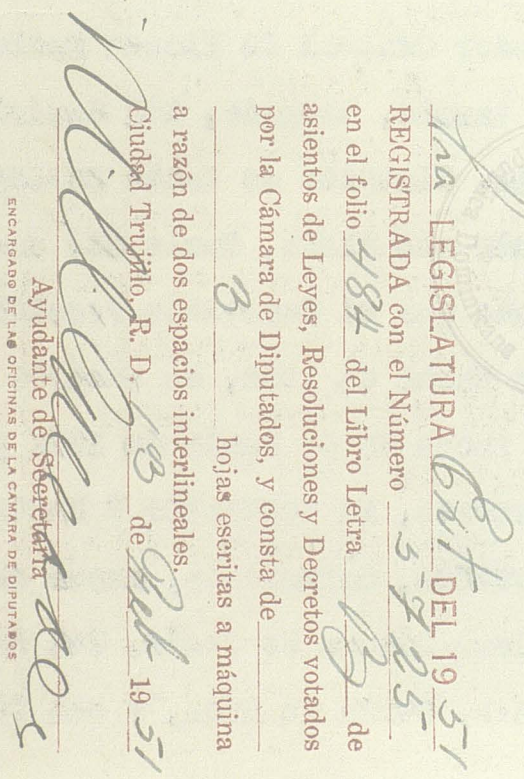 1ra LEGISLATURA Ext DEL 1951
REGISTRADA con el Número 5725
en el folio 484 del Libro Letra B de
asientos de Leyes, Resoluciones y Decretos votados
por la Cámara de Diputados, y consta de
3 hojas escritas a máquina
a razón de dos espacios interlineales.
Ciudad Trujillo, R. D. 13 de Feb 1951
Ayudante de Secretaría
ENCARGADO DE LAS OFICINAS DE LA CAMARA DE DIPUTADOS